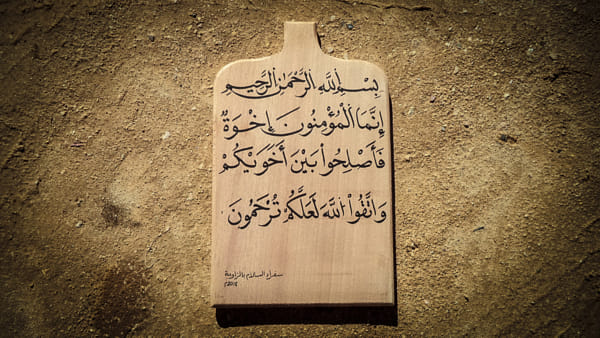 بِسْمِ اللَّهِ الرَّحْمَٰنِ الرَّحِيمِ
إِنَّمَا الْمُؤْمِنُونَ إِخْوَةٌ
فَأَصْلِحُوا بَيْنَ أَخَوَيْكُمْ
وَاتَّقُوا اللَّهَ لَعَلَّكُمْ تُرْحَمُونَ
سفراء السلام بالزاوية